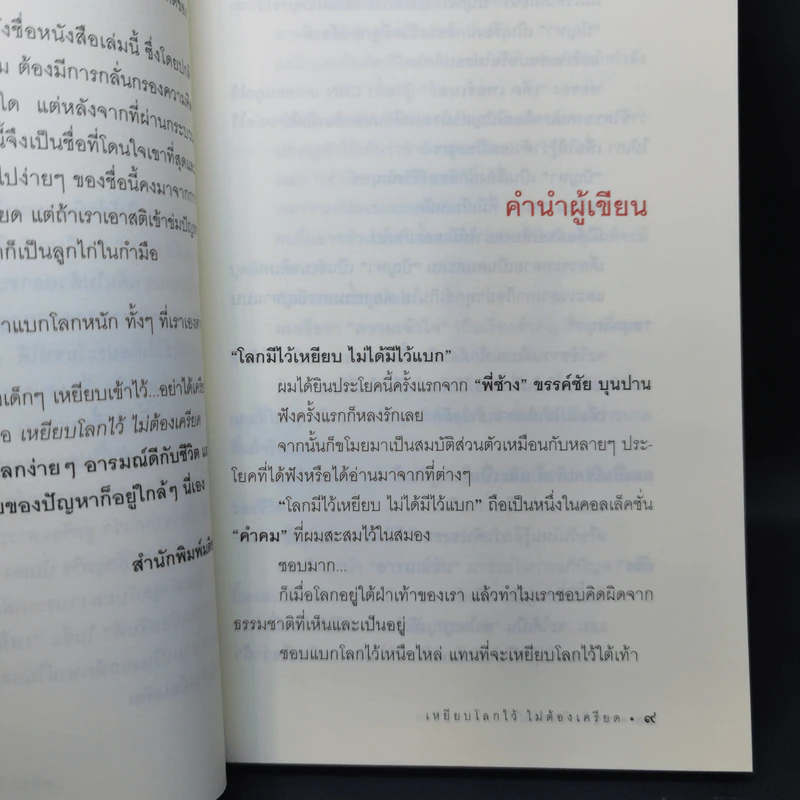 งชื่อหนังสือเล่มนี้ ซึ่งโดยปกติ
ม ต้องมีการกลั่นกรองความคิด
ใด แต่หลังจากที่ผ่านกระบวน
นี้จึงเป็นชื่อที่โดนใจเขาที่สุดและ
ไปง่ายๆ ของชื่อนี้คงมาจากการ
ยด แต่ถ้าเราเอาสติเข้าข่มปัญหา
าก็เป็นลูกไก่ในกำมือ
าแบกโลกหนัก ทั้งๆ ที่เราเอง
งเด็กๆ เหยียบเข้าไว้...อย่าได้
อ เหยียบโลกไว้ ไม่ต้องเครียด
ลกง่ายๆ อารมณ์ดีกับชีวิต
บของปัญหาก็อยู่ใกล้ๆ นี่เอง
สำนักพิมพ์มติ
คำนำผู้เขียน
“โลกมีไว้เหยียบ ไม่ได้มีไว้แบก”
ผมได้ยินประโยคนี้ครั้งแรกจาก “พี่ช้าง” ขรรค์ชัย บุนปาน
ฟังครั้งแรกก็หลงรักเลย
จากนั้นก็ขโมยมาเป็นสมบัติส่วนตัวเหมือนกับหลายๆ ประ-
โยคที่ได้ฟังหรือได้อ่านมาจากที่ต่างๆ
“โลกมีไว้เหยียบ ไม่ได้มีไว้แบก” ถือเป็นหนึ่งในคอลเล็คชั่น
“คำคม” ที่ผมสะสมไว้ในสมอง
ชอบมาก...
ก็เมื่อโลกอยู่ใต้ฝ่าเท้าของเรา แล้วทำไมเราชอบคิดผิดจาก
ธรรมชาติที่เห็นและเป็นอยู่
ชอบแบกโลกไว้เหนือไหล่ แทนที่จะเหยียบโลกไว้ใต้เท้า
เหยียบโลกไว้ ไม่ต้องเครียด • ๙